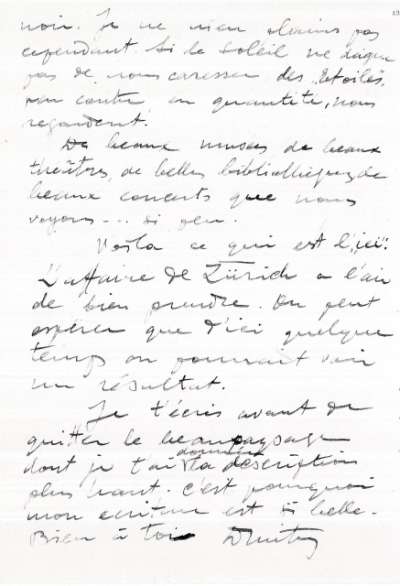 noir. Je ne m'en plains pas
cependant. Si le soleil ne daigne
pas de nous caresser des "étoiles",
par contre, en quantité, nous
regardent.
De beaux musées de beaux
théâtres, de belles bibliothèques, de
beaux concerts que nous
voyons... si peu.
Voilà ce qui est l'"ici".
L'affaire de Zürich a l'air
de bien prendre. On peut
espérer que d'ici quelque
temps on pourrait voir
un résultat.
Je t'écris avant de
quitter le beau paysage
dont je t'ai donné la description
plus haut. C'est pourquoi
mon écriture est si belle.
Bien à toi Dmitry